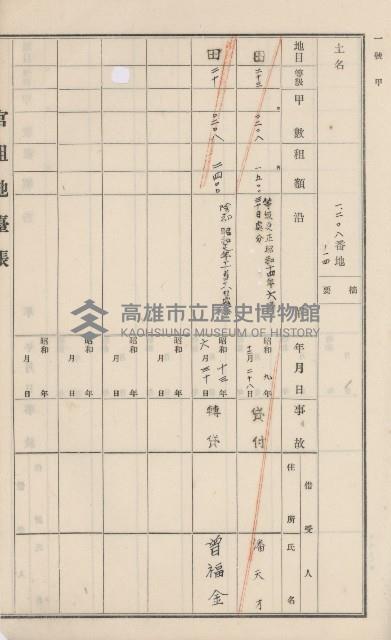 一號甲
土名
一二〇八番地
ノ一四
摘要
地目
等級
甲數
租額
沿
年月日
事故
借受人
住所
氏名
田
二十三
〇二〇八
一五〇〇
等級更正昭和十四年六月
三十日處分
昭和九年
十二月二十八日
貸付
潘天才
田
二十
〇二〇八
二四〇〇
昭和十三年
六月三十日
轉貸
曾福金
昭和 年
月 日
昭和 年
月 日
昭和 年
月 日
昭和 年
月 日
官租地臺帳
高雄市立歷史博物館
KAOHSIUNG MUSEUM OF HISTORY